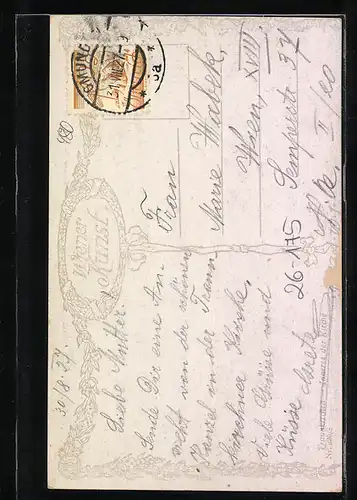 GMUND
31.VIII.27
5a
Wiener
Kunst
30/8. 27.
Liebe Mutter.
Sende Dir eine An-
sicht von der schönen
Kanzel in der Traun
kirchner Kirche.
Viele Grüße und
Küsse
Frau
Marie
Wien, XVIII
Semperstr. 37
II/20
26-175